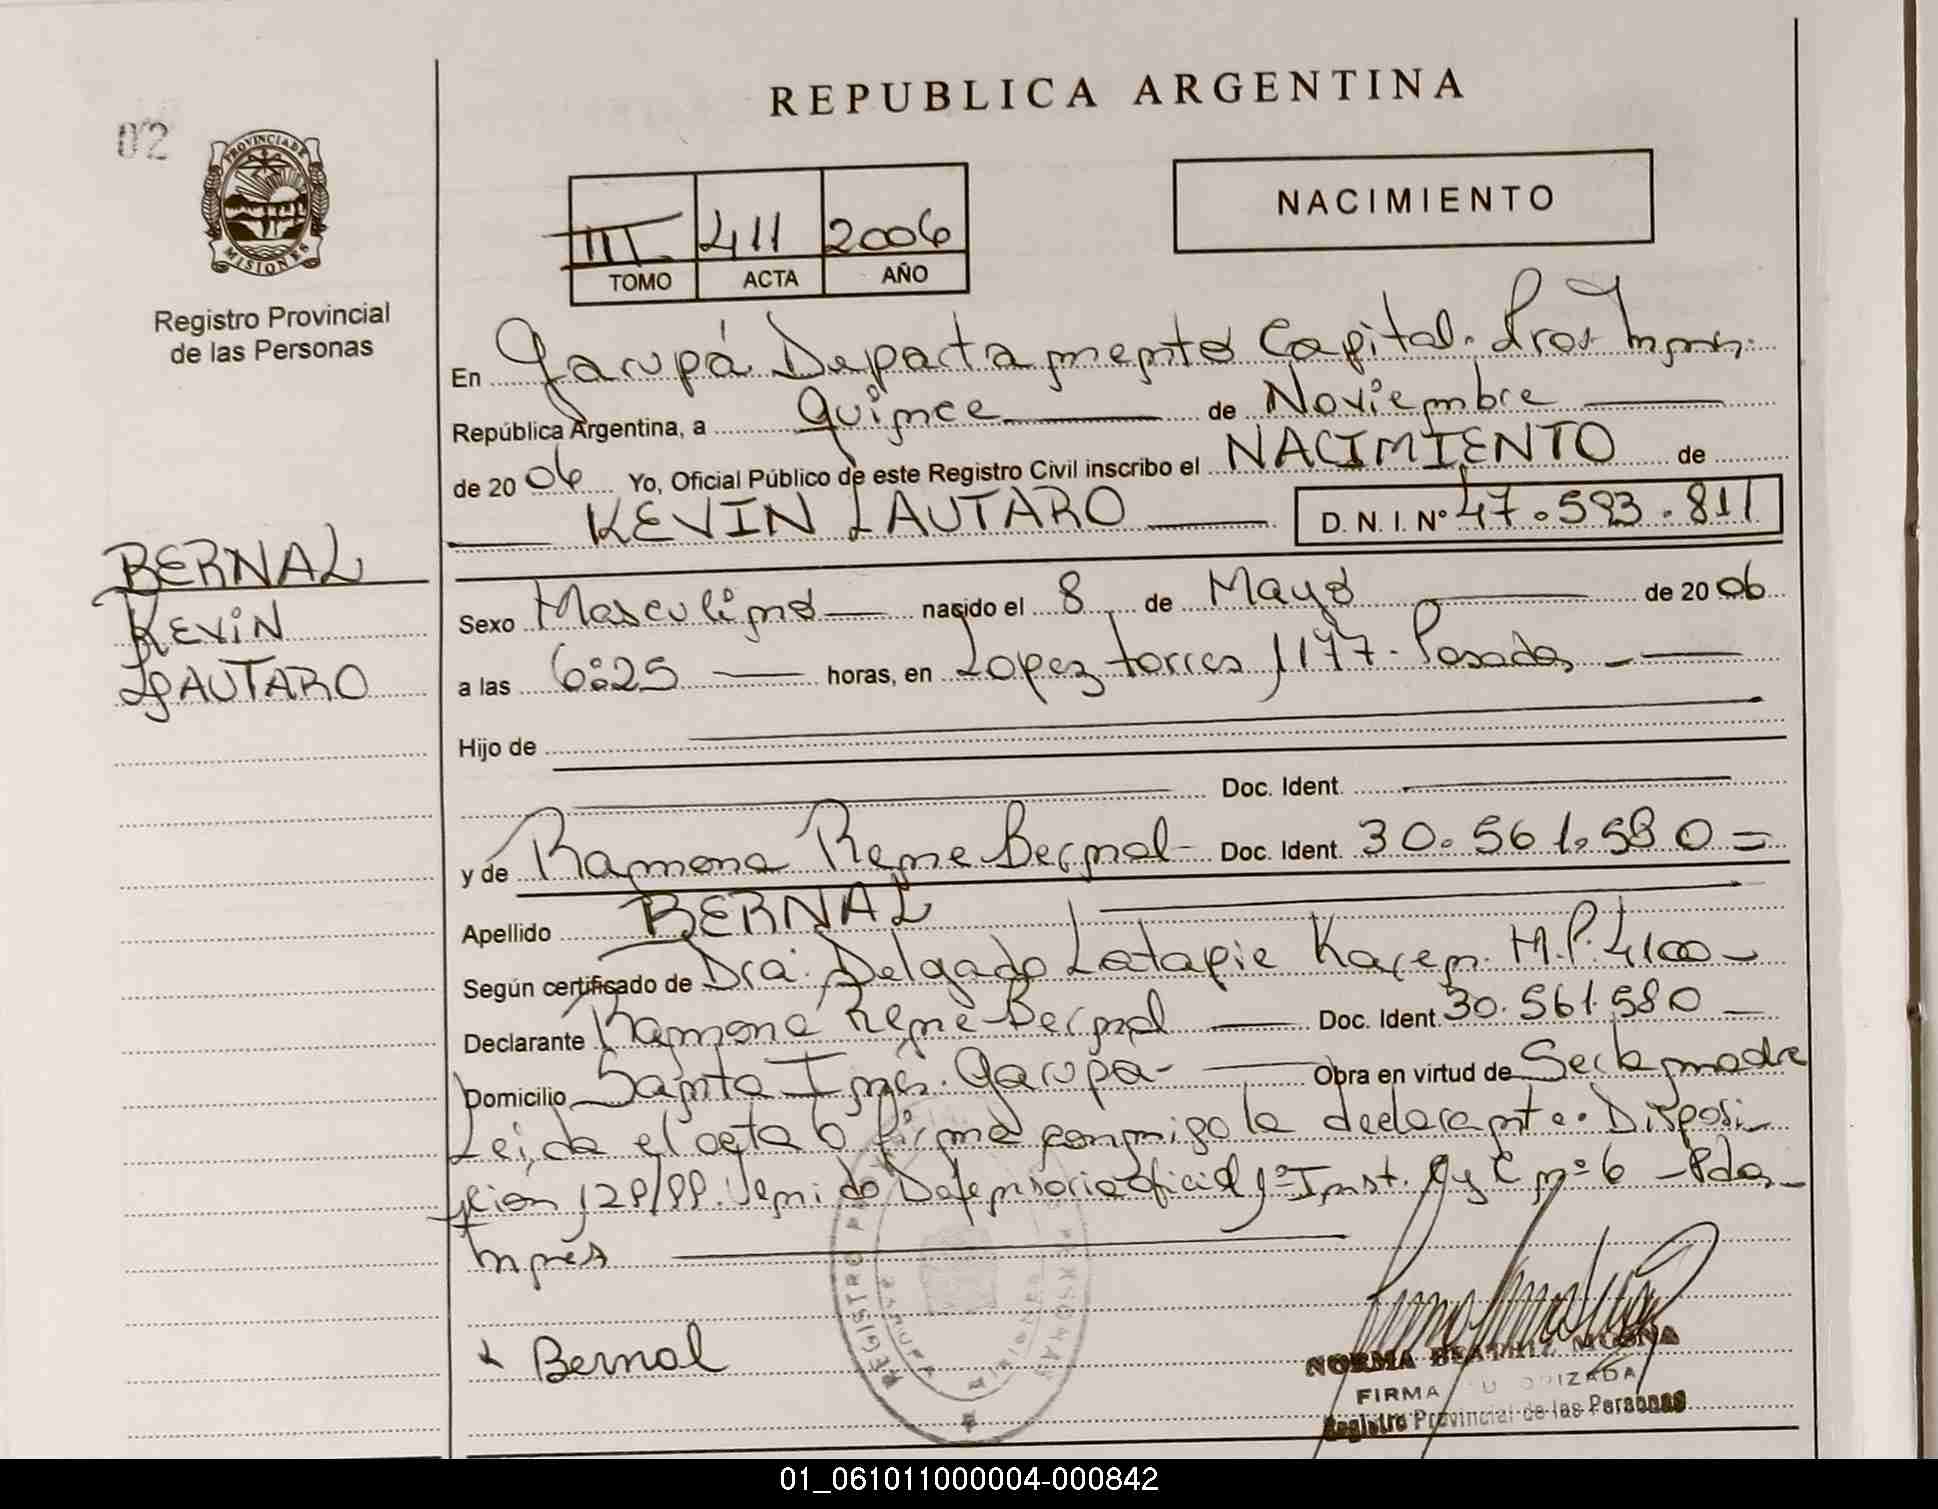 02
PROVINCIA DE
MISIONES
Registro Provincial
de las Personas
REPUBLICA ARGENTINA
III 411 2006
TOMO ACTA AÑO
NACIMIENTO
En Garupá Departamento Capital. Pros. Mnes.
República Argentina, a Quince de Noviembre
de 2006 Yo, Oficial Público de este Registro Civil inscribo el NACIMIENTO de
KEVIN LAUTARO D.N.I. Nº 47.593.811
BERNAL
KEVIN
LAUTARO
Sexo Masculino nacido el 8 de Mayo de 2006
a las 6:25 horas, en Lopez torres 1177. Posadas
Hijo de
Doc. Ident.
y de Ramona Rene Bernal - Doc. Ident. 30.561.580 =
Apellido BERNAL
Según certificado de Dra. Delgado Latapie Karen. M.P. 4100 -
Declarante Ramona Rene Bernal Doc. Ident. 30.561.580
Domicilio Santa Ines. Garupa - Obra en virtud de Ser la madre
Leida el acta firma conmigo la declarante. Disposi
cion Defensoria oficial 1º Inst. C y C nº 6 - Pdas
Mnes
Bernal
REGISTRO PERSONAS
NORMA BEATRIZ
FIRMA AUTORIZADA
Registro Provincial de las Personas
01_061011000004-000842